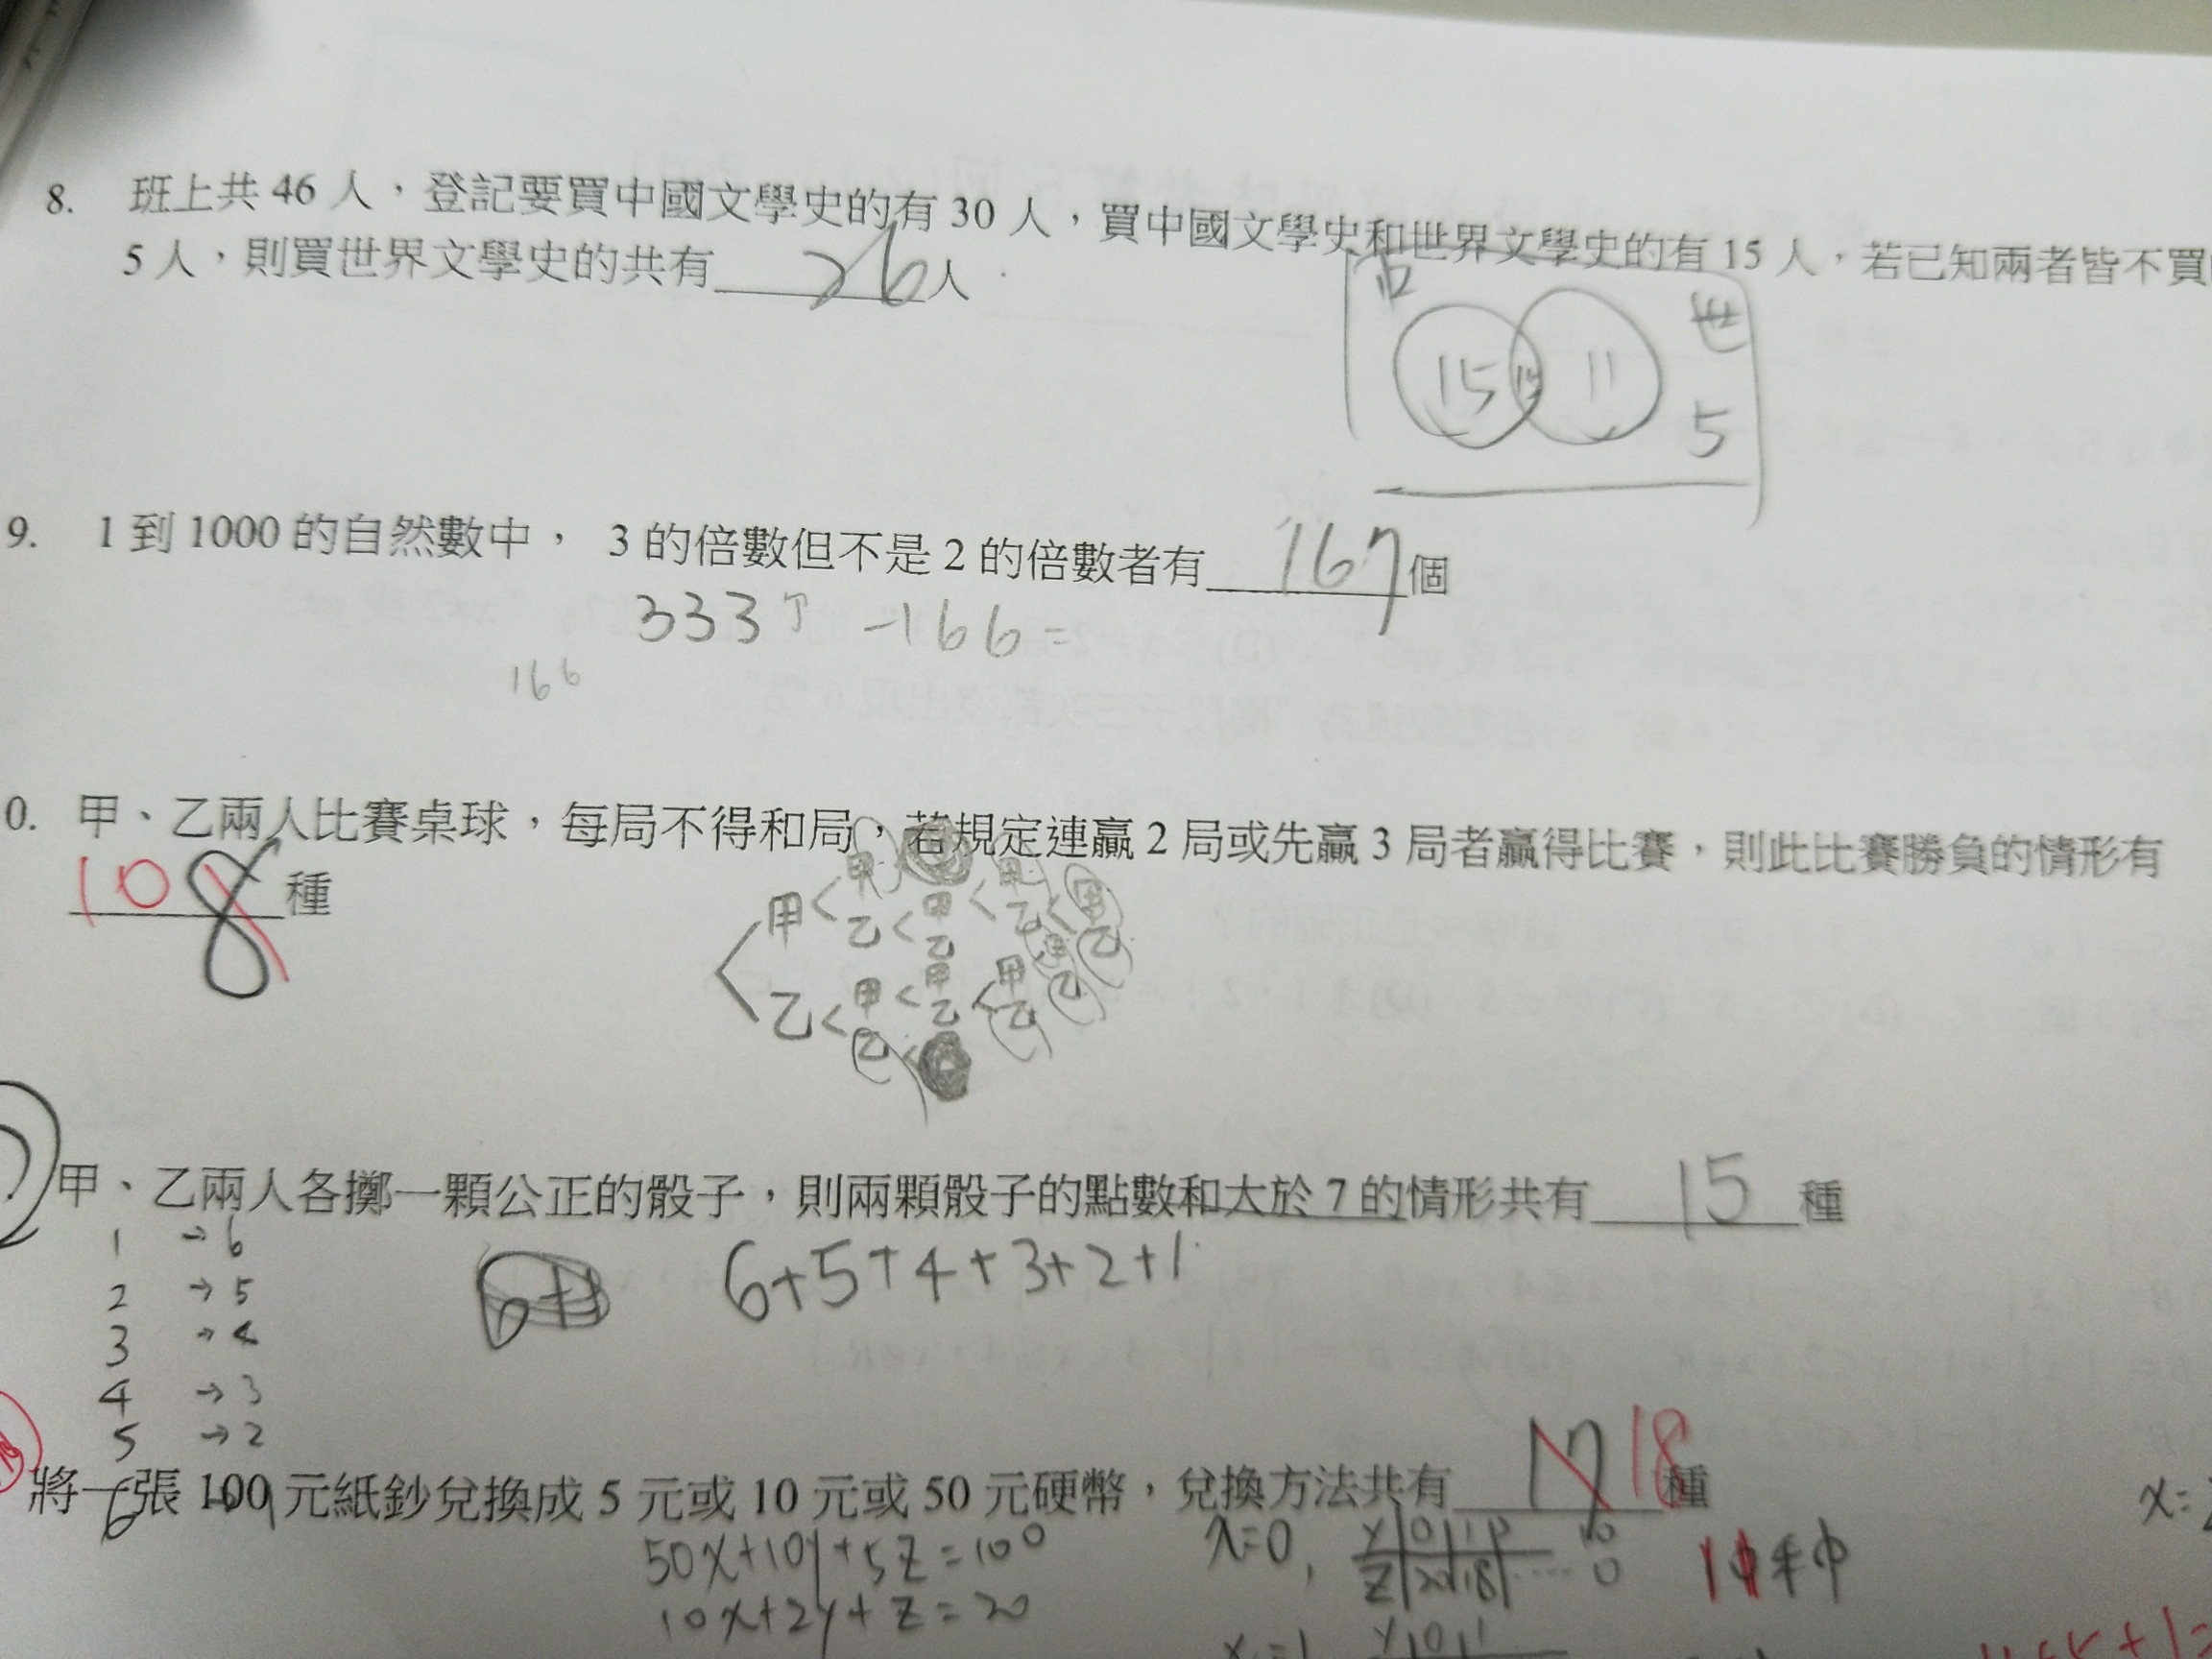 8. 班上共 46 人，登記要買中國文學史的有 30 人，買中國文學史和世界文學史的有 15 人，若已知兩者皆不買
5 人，則買世界文學史的共有 26 人
中 世
15 15 11
5
9. 1 到 1000 的自然數中， 3 的倍數但不是 2 的倍數者有 167 個
333個 -166=
166
0. 甲、乙兩人比賽桌球，每局不得和局，若規定連贏 2 局或先贏 3 局者贏得比賽，則此比賽勝負的情形有
10 8 種
甲 < 甲 乙 < 甲 乙 < 甲 乙 < 甲 乙
乙 < 甲 乙 < 甲 乙 < 甲 乙 < 甲 乙
甲、乙兩人各擲一顆公正的骰子，則兩顆骰子的點數和大於 7 的情形共有 15 種
1 → 6
2 → 5
3 → 4
4 → 3
5 → 2
6 → 1
6+5+4+3+2+1
將一張 100 元紙鈔兌換成 5 元或 10 元或 50 元硬幣，兌換方法共有 17 18 種
50x+10y+5z=100
10x+2y+z=20
x=0,
y 0 1 10
z 20 18 ⋯ 0
x=1
y 0 1
x=